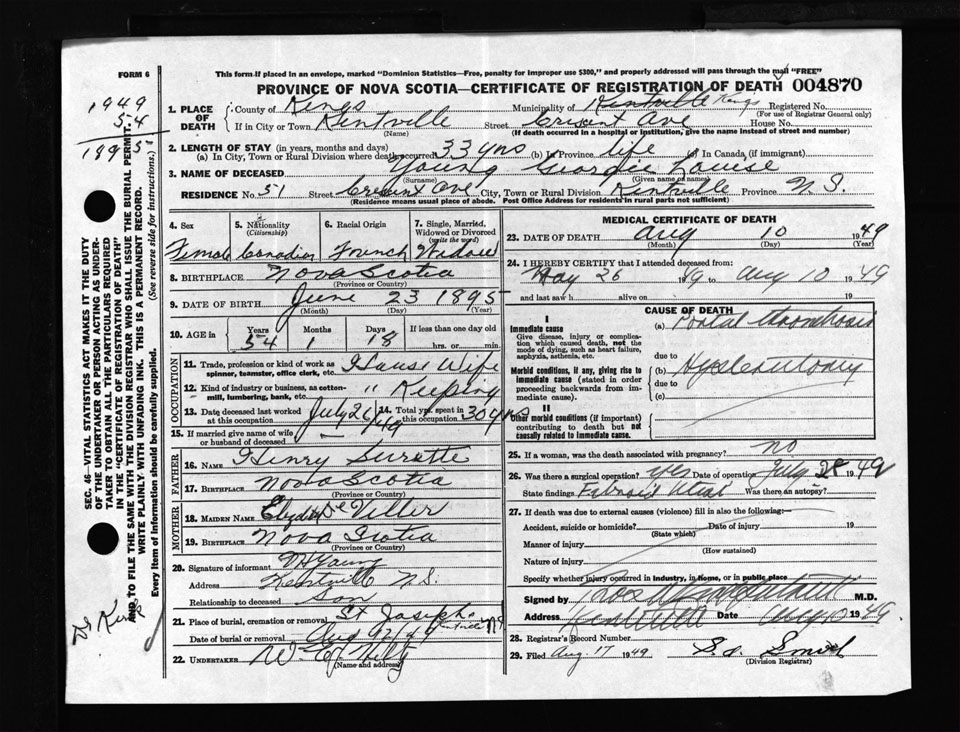 FORM 6
This form if placed in an envelope, marked "Dominion Statistics—Free, penalty for improper use $300," and properly addressed will pass through the mail "FREE"
PROVINCE OF NOVA SCOTIA—CERTIFICATE OF REGISTRATION OF DEATH 004870
1949
54
1895
SEC. 46—VITAL STATISTICS ACT MAKES IT THE DUTY
OF THE UNDERTAKER OR PERSON ACTING AS UNDER-
TAKER TO OBTAIN ALL THE PARTICULARS REQUIRED
IN THE "CERTIFICATE OF REGISTRATION OF DEATH"
AND TO FILE THE SAME WITH THE DIVISION REGISTRAR WHO SHALL ISSUE THE BURIAL PERMIT.
WRITE PLAINLY WITH UNFADING INK. THIS IS A PERMANENT RECORD.
Every item of information should be carefully supplied. (See reverse side for instructions.)
1. PLACE OF DEATH
County of Kings Municipality of Kentville Kings Registered No.
(For use of Registrar General only)
If in City or Town Kentville Street Cresent Ave House No.
(Name) (If death occurred in a hospital or institution, give the name instead of street and number)
2. LENGTH OF STAY (in years, months and days)
(a) In City, Town or Rural Division where death occurred 33 yrs (b) In Province life (c) In Canada (if immigrant)
3. NAME OF DECEASED Young Georgie Louise
(Surname) (Given name or names)
RESIDENCE No. 51 Street Cresent Ave City, Town or Rural Division Kentville Province N.S.
(Residence means usual place of abode. Post Office Address for residents in rural parts not sufficient)
4. Sex 5. Nationality (Citizenship) 6. Racial Origin 7. Single, Married, Widowed or Divorced (write the word)
Female Canadian French Widow
8. BIRTHPLACE Nova Scotia
(Province or Country)
9. DATE OF BIRTH June 23 1895
(Month) (Day) (Year)
10. AGE in Years Months Days If less than one day old
54 1 18 hrs. or min.
OCCUPATION
11. Trade, profession or kind of work as spinner, teamster, office clerk, etc. House Wife
12. Kind of industry or business, as cotton-mill, lumbering, bank, etc. " Keeping
13. Date deceased last worked at this occupation July 26/49 14. Total yrs. spent in this occupation 30 yrs
15. If married give name of wife or husband of deceased —
FATHER
16. NAME Henry Surette
17. BIRTHPLACE Nova Scotia
(Province or Country)
MOTHER
18. MAIDEN NAME De Viller
19. BIRTHPLACE Nova Scotia
(Province or Country)
20. Signature of informant M Young
Address Kentville N.S.
Relationship to deceased Son
21. Place of burial, cremation or removal St Joseph Kentville NS
Date of burial or removal Aug
22. UNDERTAKER
(Name and address)
Dr Kirk
MEDICAL CERTIFICATE OF DEATH
23. DATE OF DEATH Aug 10 1949
(Month) (Day) (Year)
24. I HEREBY CERTIFY that I attended deceased from:
May 26 1949 to Aug 10 1949
and last saw h alive on 19
CAUSE OF DEATH
I
Immediate cause
Give disease, injury or complication which caused death, not the mode of dying, such as heart failure, asphyxia, asthenia, etc.
(a) Portal Thrombosis
due to
Morbid conditions, if any, giving rise to immediate cause (stated in order proceeding backwards from immediate cause).
(b) Hysterectomy
due to
(c)
II
Other morbid conditions (if important) contributing to death but not causally related to immediate cause.
25. If a woman, was the death associated with pregnancy? no
26. Was there a surgical operation? yes Date of operation July 28 1949
State findings Was there an autopsy?
27. If death was due to external causes (violence) fill in also the following:—
Accident, suicide or homicide? Date of injury 19
(State which)
Manner of injury
(How sustained)
Nature of injury
Specify whether injury occurred in industry, in home, or in public place
Signed by M.D.
Address Kentville Date Aug 1949
28. Registrar's Record Number
29. Filed Aug. 17 1949
(Division Registrar)